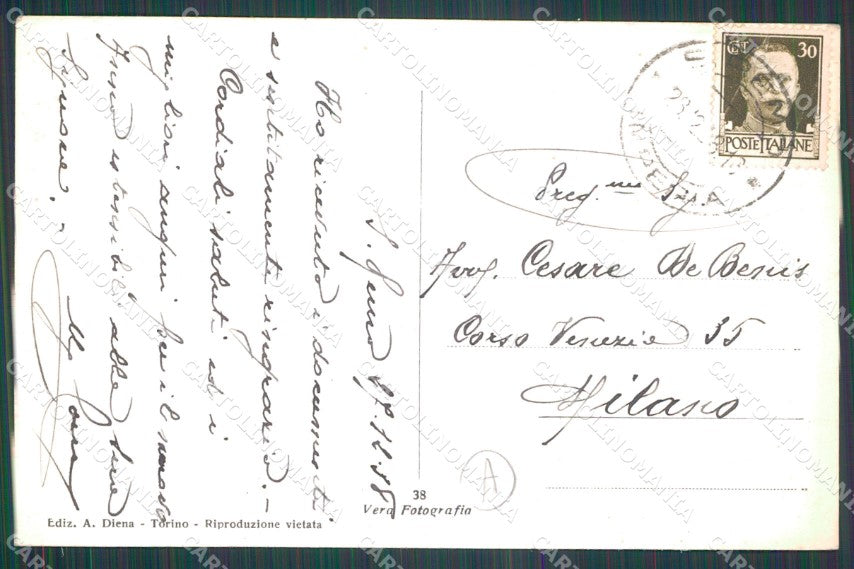 Ho ricevuto i documenti
e sentitamente ringrazio. -
Cordiali saluti ed i
migliori auguri per il nuovo
Anno estensibili alla Sua
Signora. -
27.12.38
CENT 30
POSTE ITALIANE
Preg.mo Sig.
Avv. Cesare De Benis
Corso Venezia 35
Milano
A
38
Vera Fotografia
Ediz. A. Diena - Torino - Riproduzione vietata
CARTOLINOMANIA